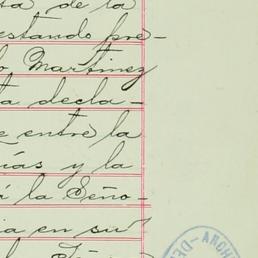 ta de la
estando pre-
o Martinez
ta decla-
e entre la
ías y la
á la Seño-
ia en su